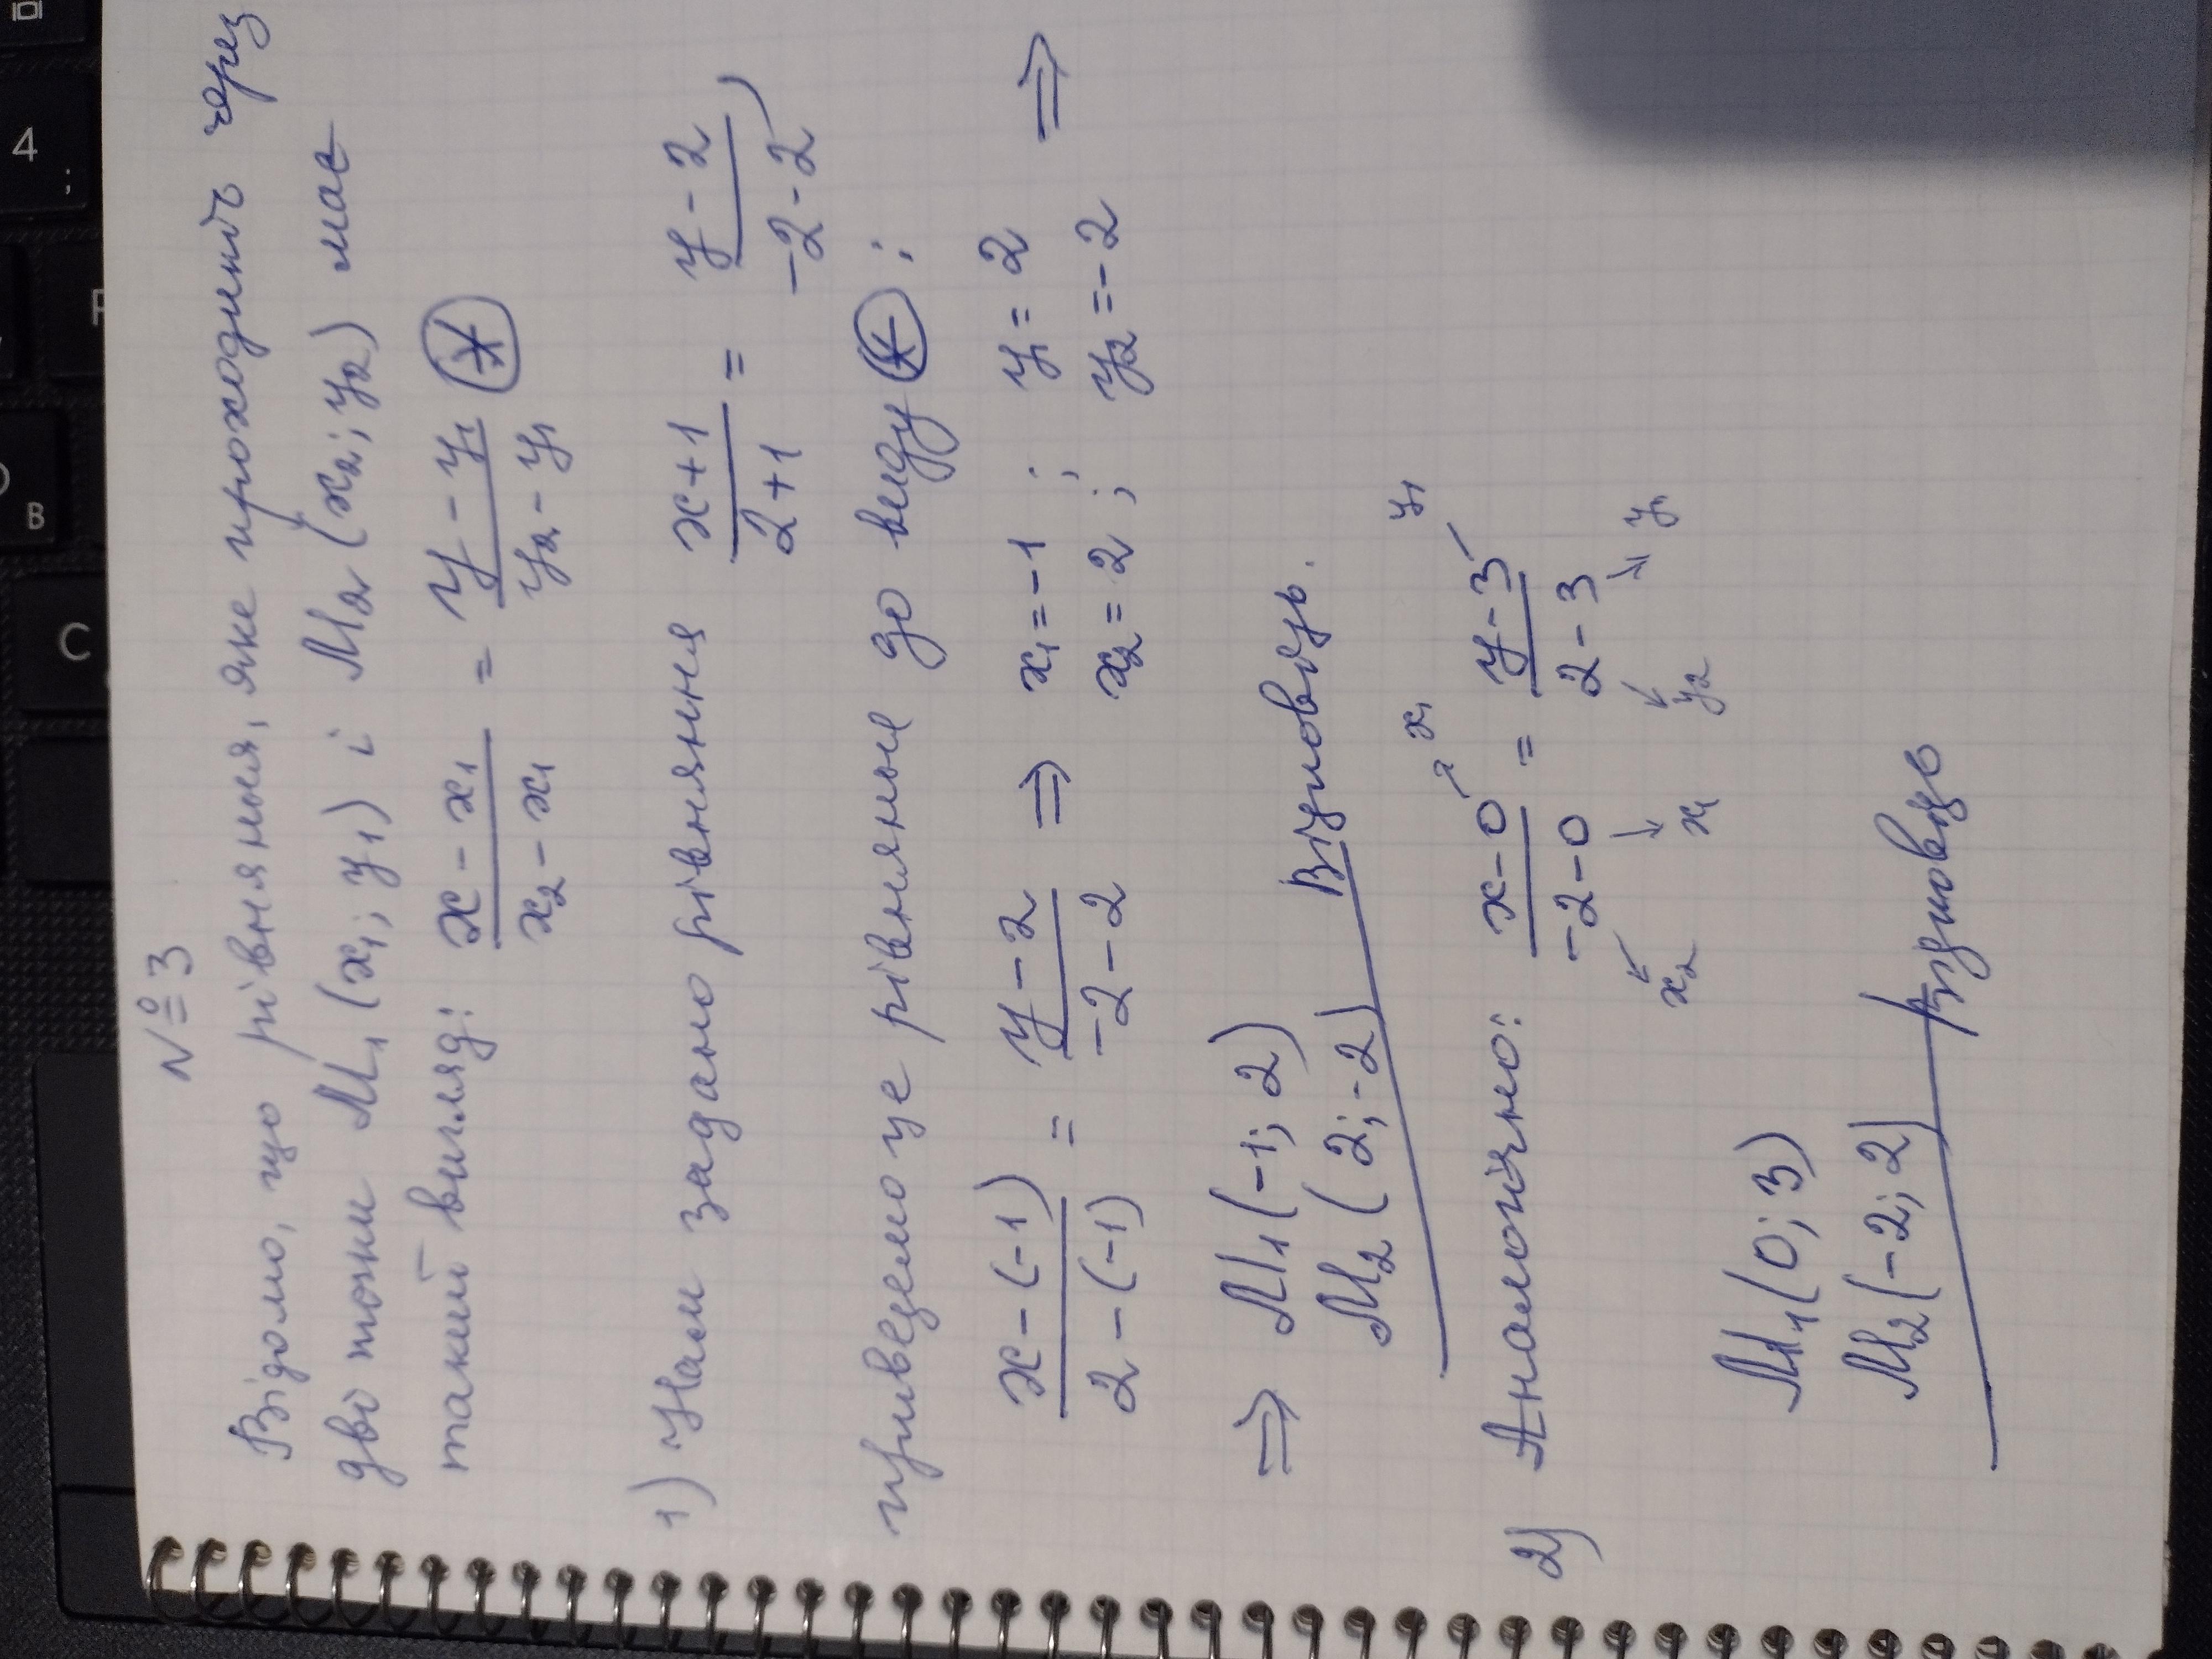 №3
Відомо, що рівняння, яке проходить через
дві точки M₁(x₁; y₁) і M₂(x₂; y₂) має
такий вигляд: (x - x₁)/(x₂ - x₁) = (y - y₁)/(y₂ - y₁) (*)
1) Нам задано рівняння (x+1)/(2+1) = (y-2)/(-2-2),
приведемо це рівняння до виду (*):
(x-(-1))/(2-(-1)) = (y-2)/(-2-2) ⇒ x₁=-1; y₁=2
x₂=2; y₂=-2 ⇒
⇒ M₁(-1; 2)
M₂(2; -2) Відповідь.
2) Аналогічно: (x-0)/(-2-0) = (y-3)/(2-3)
x₁ y₁
x₂ x₁ y₂ y₁
M₁(0; 3)
M₂(-2; 2) Відповідь
4
B
C